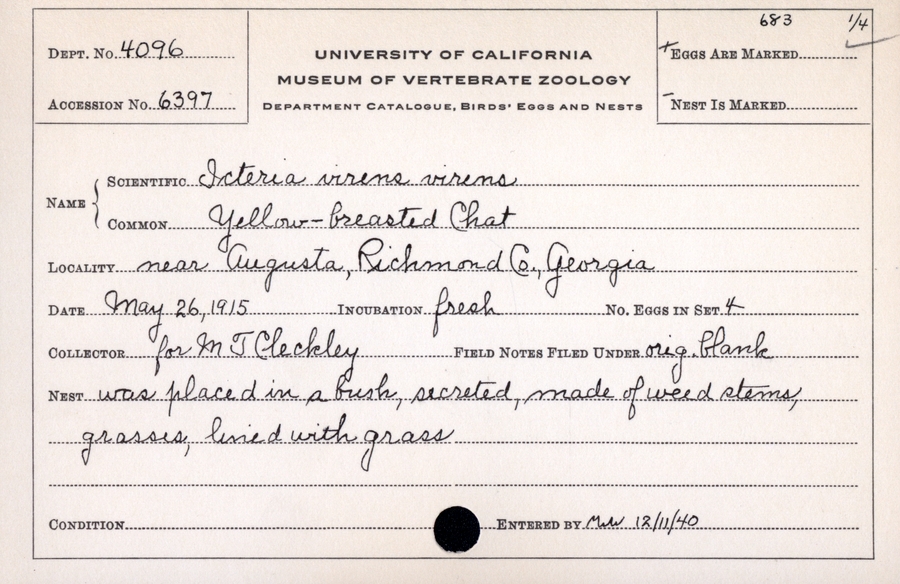 683 1/4
DEPT. No. 4096
UNIVERSITY OF CALIFORNIA
+ EGGS ARE MARKED
MUSEUM OF VERTEBRATE ZOOLOGY
ACCESSION No. 6397
DEPARTMENT CATALOGUE, BIRDS' EGGS AND NESTS
- NEST IS MARKED
NAME { SCIENTIFIC Icteria virens virens
COMMON Yellow-breasted Chat
LOCALITY near Augusta, Richmond Co., Georgia
DATE May 26, 1915 INCUBATION fresh No. EGGS IN SET 4
COLLECTOR for M T Cleckley FIELD NOTES FILED UNDER orig. blank
NEST was placed in a bush, secreted, made of weed stems,
grasses, lined with grass
CONDITION ENTERED BY 12/11/40